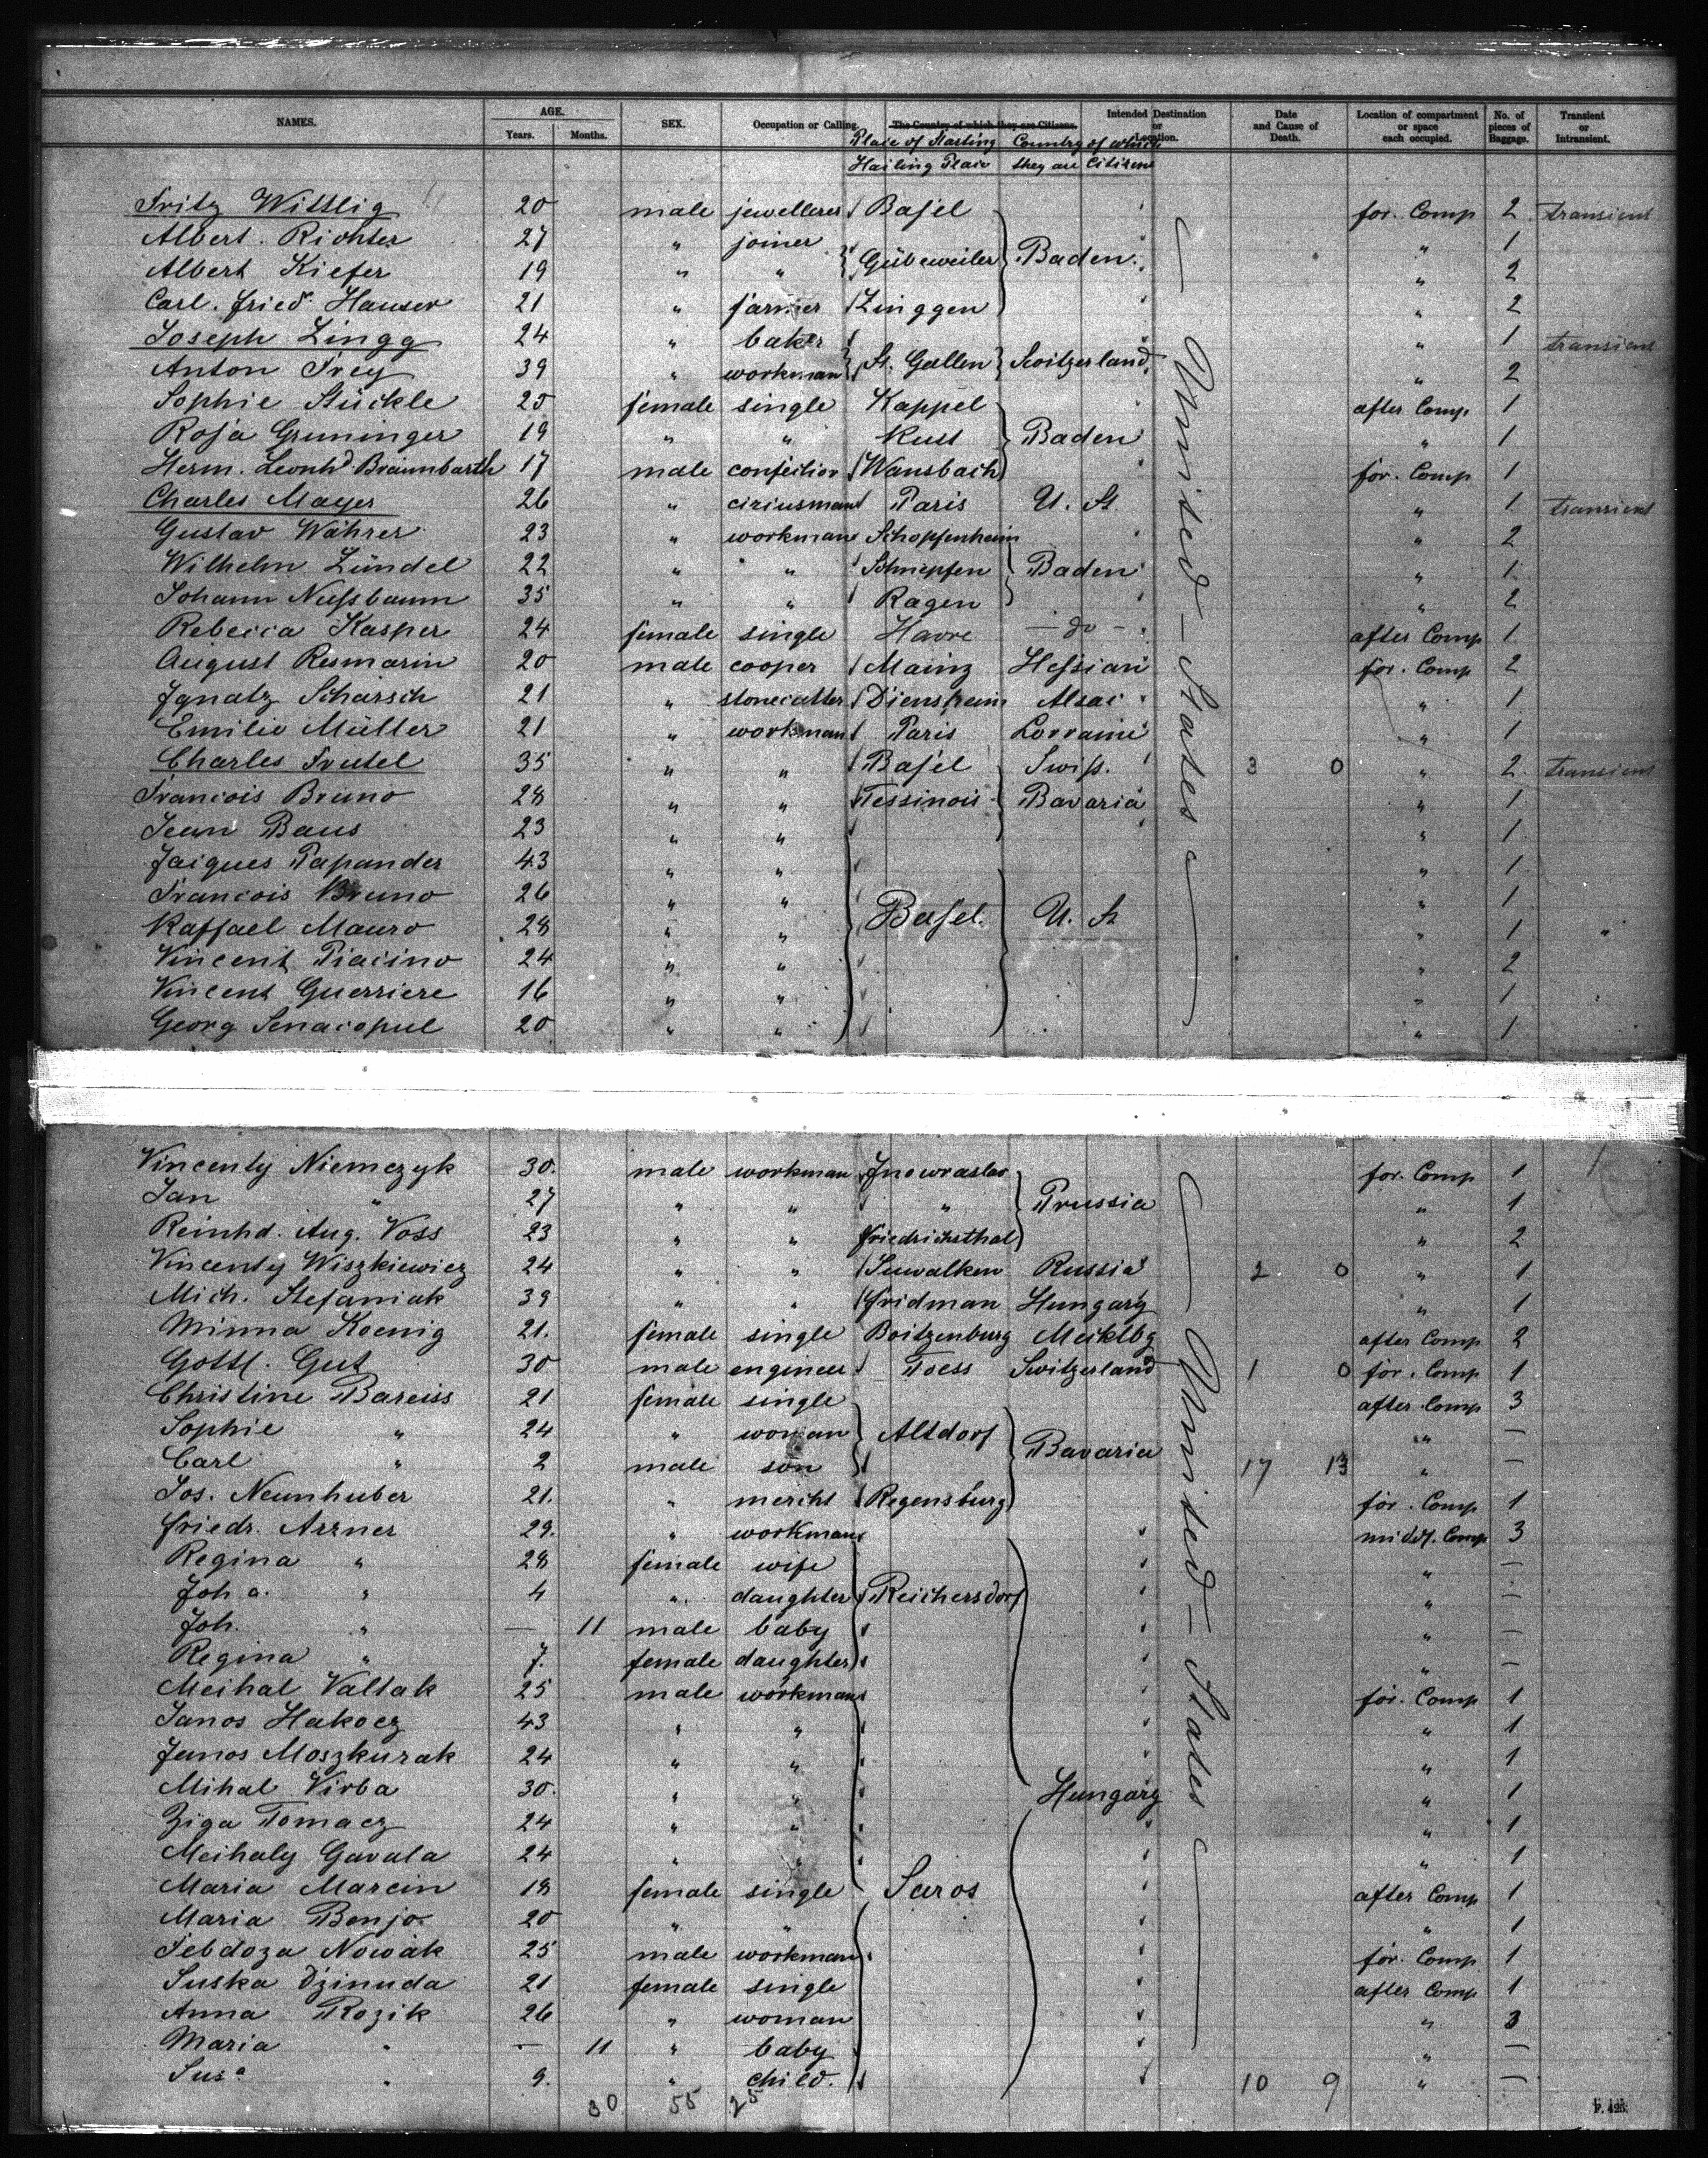 NAMES. AGE. Years. Months. SEX. Occupation or Calling. The Country of which they are Citizens. Intended Destination or Location. Date and Cause of Death. Location of compartment or space each occupied. No. of pieces of Baggage. Transient or Intransient.
Place of Starting Country of which
Hailing Place they are Citizens
Fritz Wittlig 20 male jeweller Basel for. Comp 2 transient
Albert. Richter 27 " joiner " 1
Albert Kiefer 19 " " Gübeweiler Baden. " 2
Carl. Fried. Hauser 21 " farmer Zinggen " 2
Joseph Zingg 24 " baker " 1 transient
Anton Frey 39 " workman St. Gallen Switzerland " 2
Sophie Stückle 20 female single Kappel after Comp. 1
Rosa Gruninger 19 " " Rust Baden " 1
Herm. Leonhd. Braunbarth 17 male Wansbach for. Comp 1
Charles Mayer 26 " Paris U. St " 1 transient
Gustav Währer 23 " workman Schopfenheim " 2
Wilhelm Zündel 22 " " Schnepfen Baden " 1
Johann Nussbaum 35 " " Ragen " 2
Rebecca Kasper 24 female single Havre – do – after Comp 1
August Resmarin 20 male cooper Mainz Hessian for. Comp 2
Ignatz Scharsch 21 " stonecutter Alsac " 1
Emilie Müller 21 " workman Paris Lorraine " 1
Charles Frutel 35 " " Basel Swiss. 3 0 " 2 transient
Francois Bruno 28 " " Tessinois Bavaria " 1
Jean Baus 23 " " " 1
Jacques Papander 43 " " " 1
Francois Bruno 26 " " " 1
Raffael Mauro 28 " " Basel. U. St " 1 "
Vincent Piacino 24 " " " 2
Vincent Guerriere 16 " " " 1
Georg Senacopul 20 " " " 1
United – States
Vincenty Niemczyk 30. male workman Inowraslav for. Comp 1
Jan " 27 " " " Prussia " 1
Reinhd. Aug. Voss 23 " " Friedrichsthal " 2
Vincenty Wiszkiewicz 24 " " Suwalken Russia 2 0 " 1
Mich. Stefaniak 39 " " Fridman Hungary " 1
Minna Koenig 21. female single Boitzenburg Mecklbg after Comp 2
Gottl. Gut 30 male engineer Toess Switzerland 1 0 for. Comp 1
Christine Bareiss 21 female single after Comp 3
Sophie " 24 " woman Altdorf " —
Carl " 2 male son Bavaria 17 13 " —
Jos. Neunhuber 21. " mercht Regensburg for. Comp 1
Friedr. Arzner 29. " workman middl. Comp 3
Regina " 28 female wife " —
Joh a. " 4 " daughter Reichersdorf " —
Joh. " — 11 male baby " —
Regina " 7. female daughter " —
Meihal Valtak 25 male workman for. Comp 1
Janos Hakocz 43 " " " 1
Janos Moszkurak 24 " " " 1
Mihal Virba 30. " " Hungary " 1
Ziga Tomacz 24 " " " 1
Meihaly Gavala 24 " " " 1
Maria Marcin 18 female single Saros after Comp 1
Maria Benjo 20 " " " 1
Nowak 25 male workman for. Comp 1
Suska Dzinuda 21 female single after Comp 1
Anna Rozik 26 " woman " 3
Maria " — 11 " baby " —
Susa " 9. " child. 10 9 " —
United – States
30 55 25